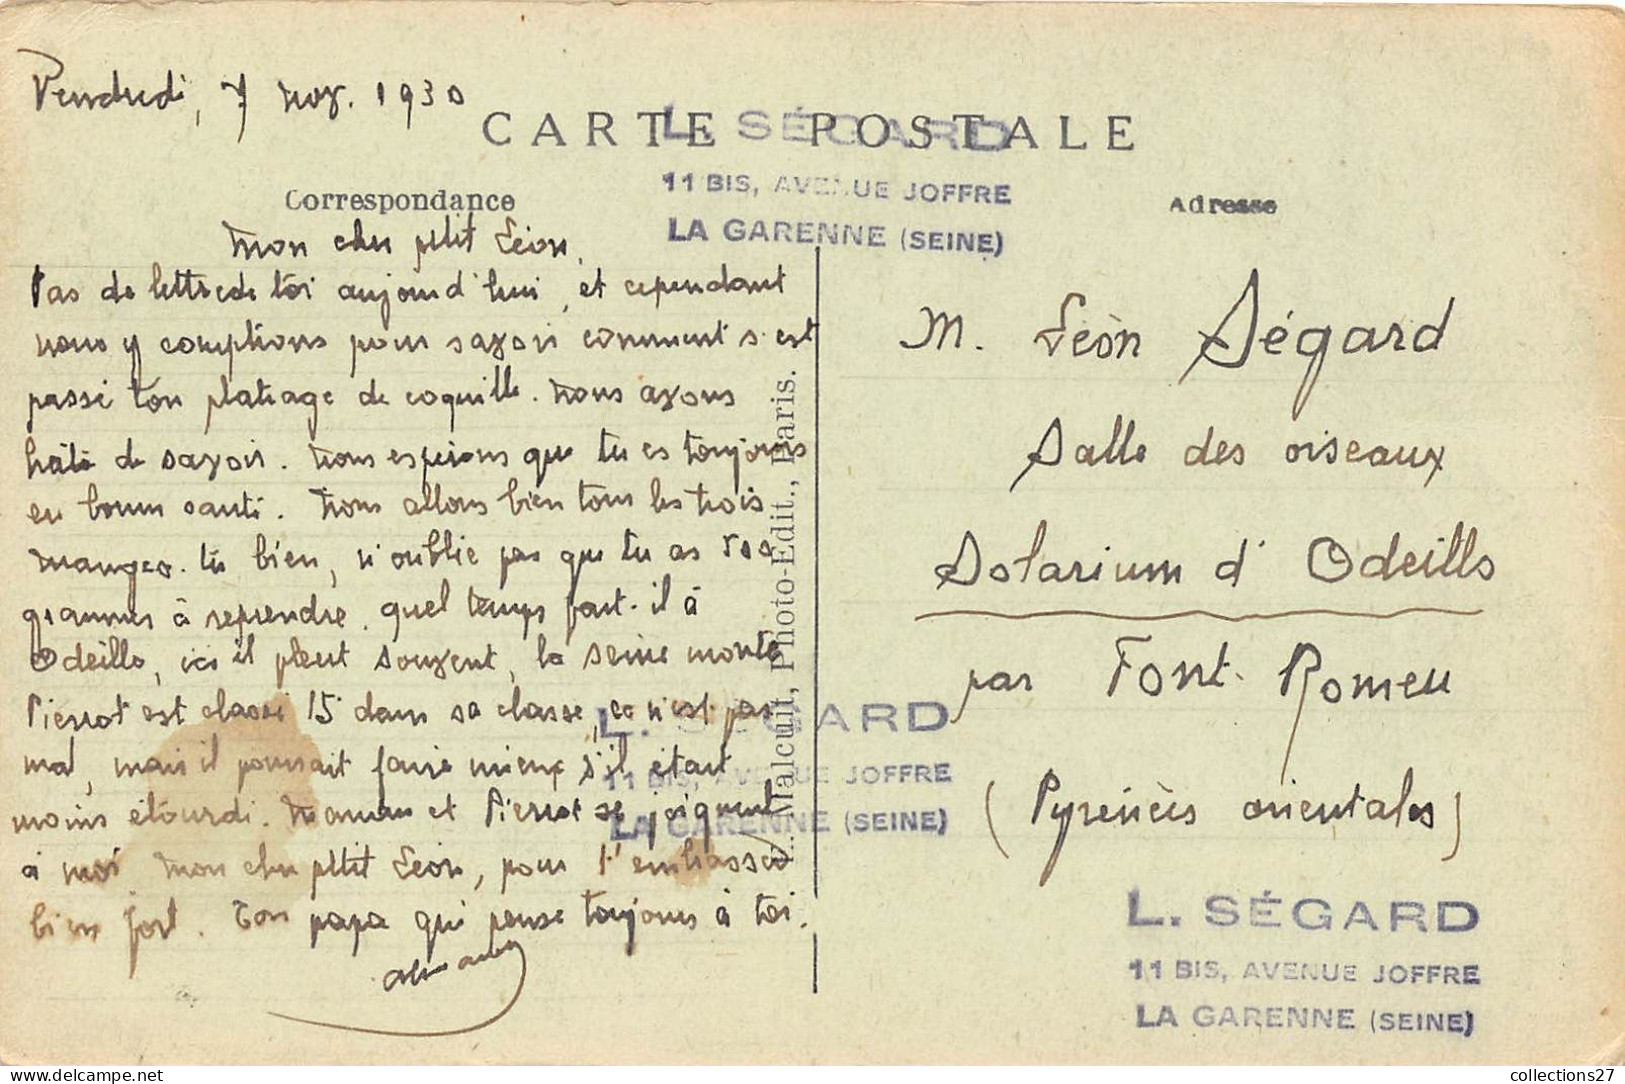 Vendredi, 7 nov. 1930
CARTE POSTALE
L. SÉGARD
11 BIS, AVENUE JOFFRE
LA GARENNE (SEINE)
Correspondance
Adresse
Mon cher ptit Léon,
Pas de lettre de toi aujourd'hui, et cependant
nous y comptions pour savoir comment s'est
passé ton platrage de coquille. Nous avons
hâte de savoir. Nous espérons que tu es toujours
en bonne santé. Nous allons bien tous les trois.
manges-tu bien, n'oublie pas que tu as
grammes à reprendre. quel temps fait-il à
Odeillo, ici il pleut souvent, la seine monte
Pierrot est classé 15 dans sa classe, ce n'est pas
mal, mais il pourrait faire mieux s'il était
moins étourdi. Maman et Pierrot se joignent
à moi mon cher ptit Léon, pour t'embrasser
bien fort. Ton papa qui pense toujours à toi.
L. Malcuit, Photo-Edit., Paris.
M. Léon Ségard
Salle des oiseaux
Solarium d'Odeillo
par Font-Romeu
(Pyrénées orientales)
L. SÉGARD
11 BIS, AVENUE JOFFRE
LA GARENNE (SEINE)
L. SÉGARD
11 BIS, AVENUE JOFFRE
LA GARENNE (SEINE)
collections27